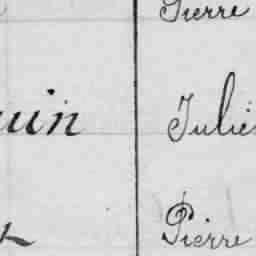 Pierre
uin Julie
Pierre